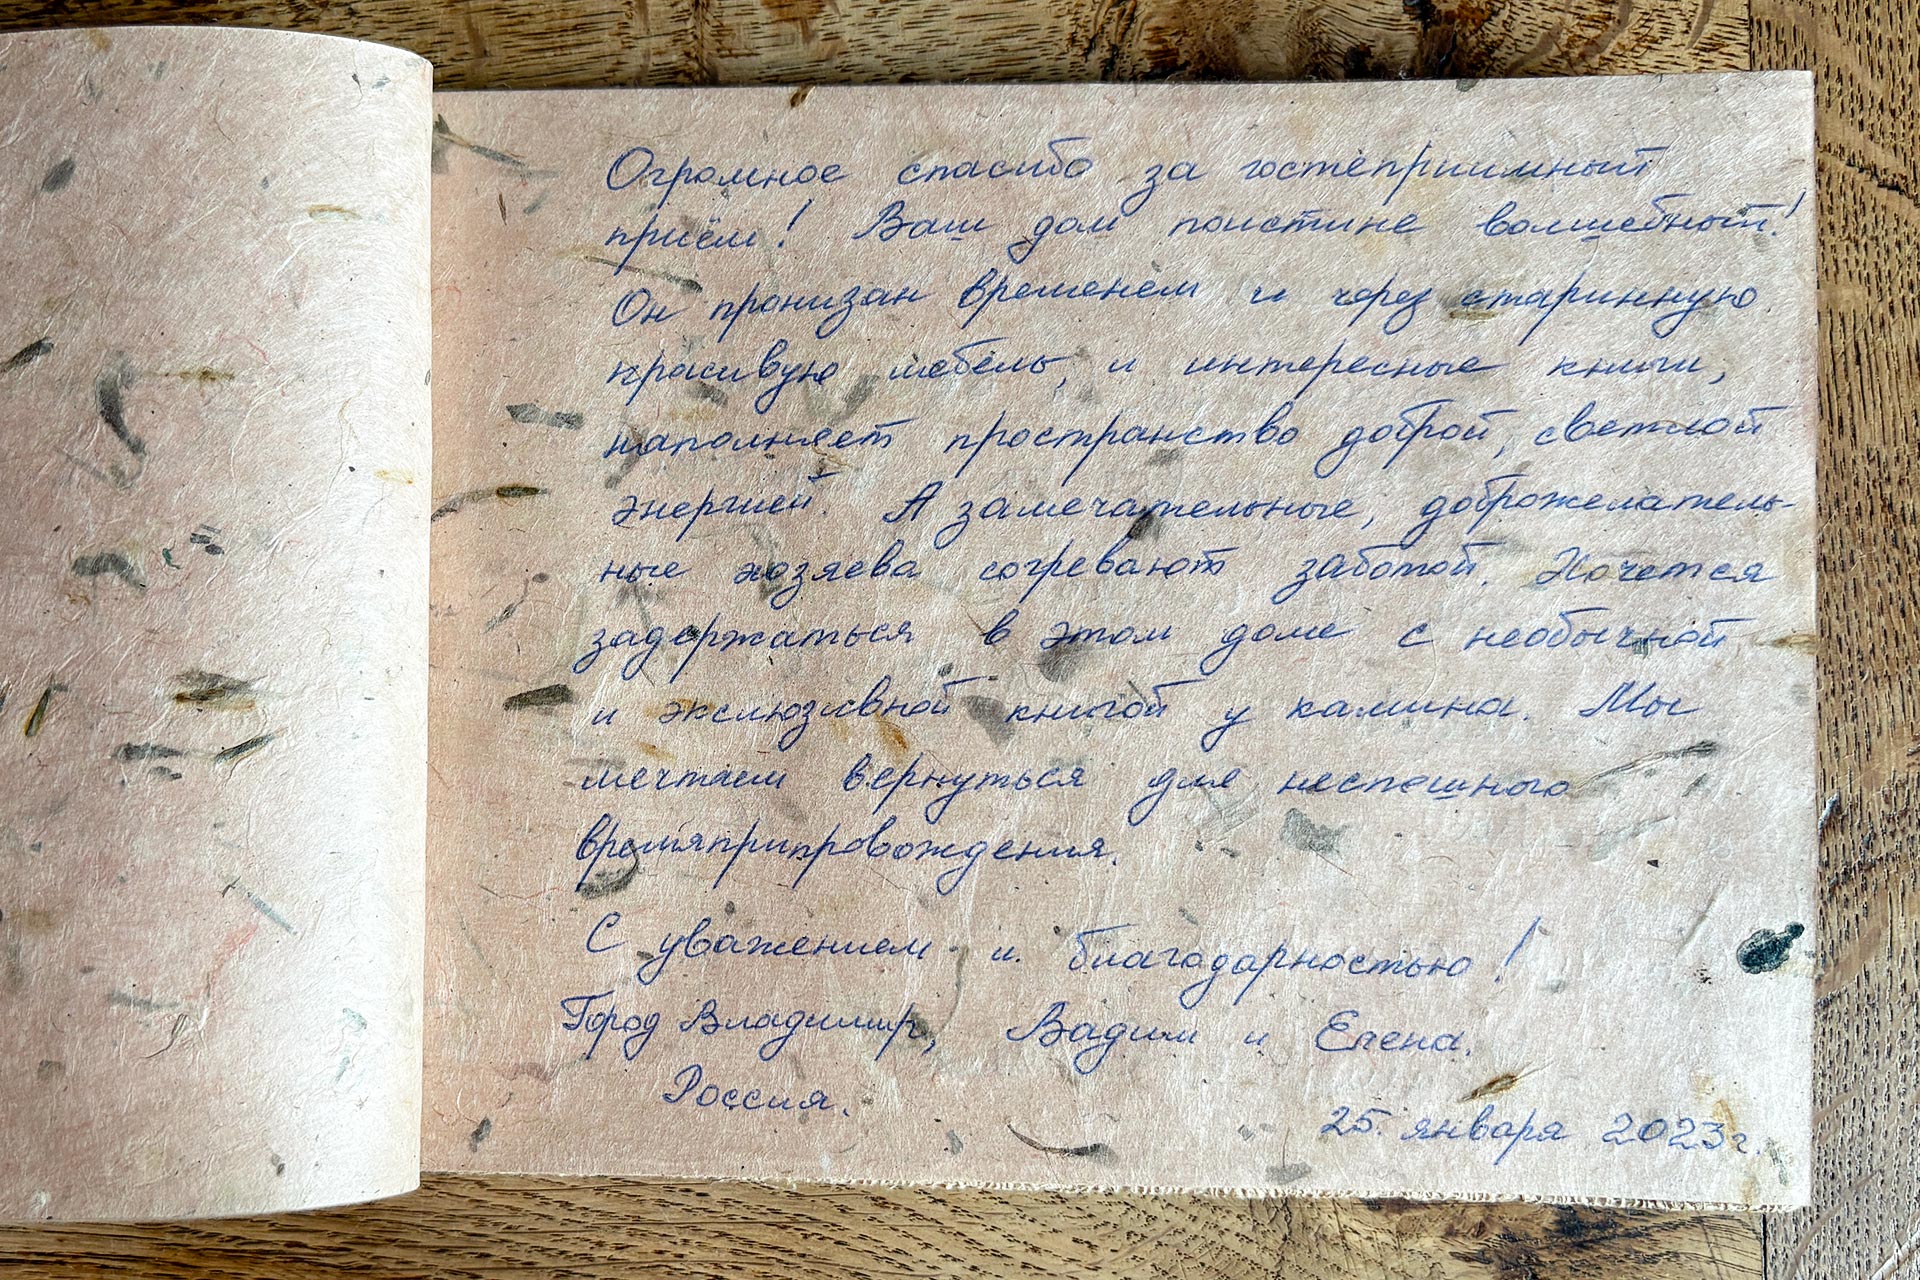 Огромное спасибо за гостеприимный
приём! Ваш дом поистине волшебный!
Он пронизан временем и через старинную
красивую мебель, и интересные книги,
наполняет пространство доброй, светлой
энергией. А замечательные, доброжелатель-
ные хозяева согревают заботой. Хочется
задержаться в этом доме с необычной
и эксклюзивной книгой у камина. Мы
мечтаем вернуться для неспешного
времяприпровождения.
С уважением и благодарностью!
Город Владимир, Вадим и Елена.
Россия.
25. января 2023г.